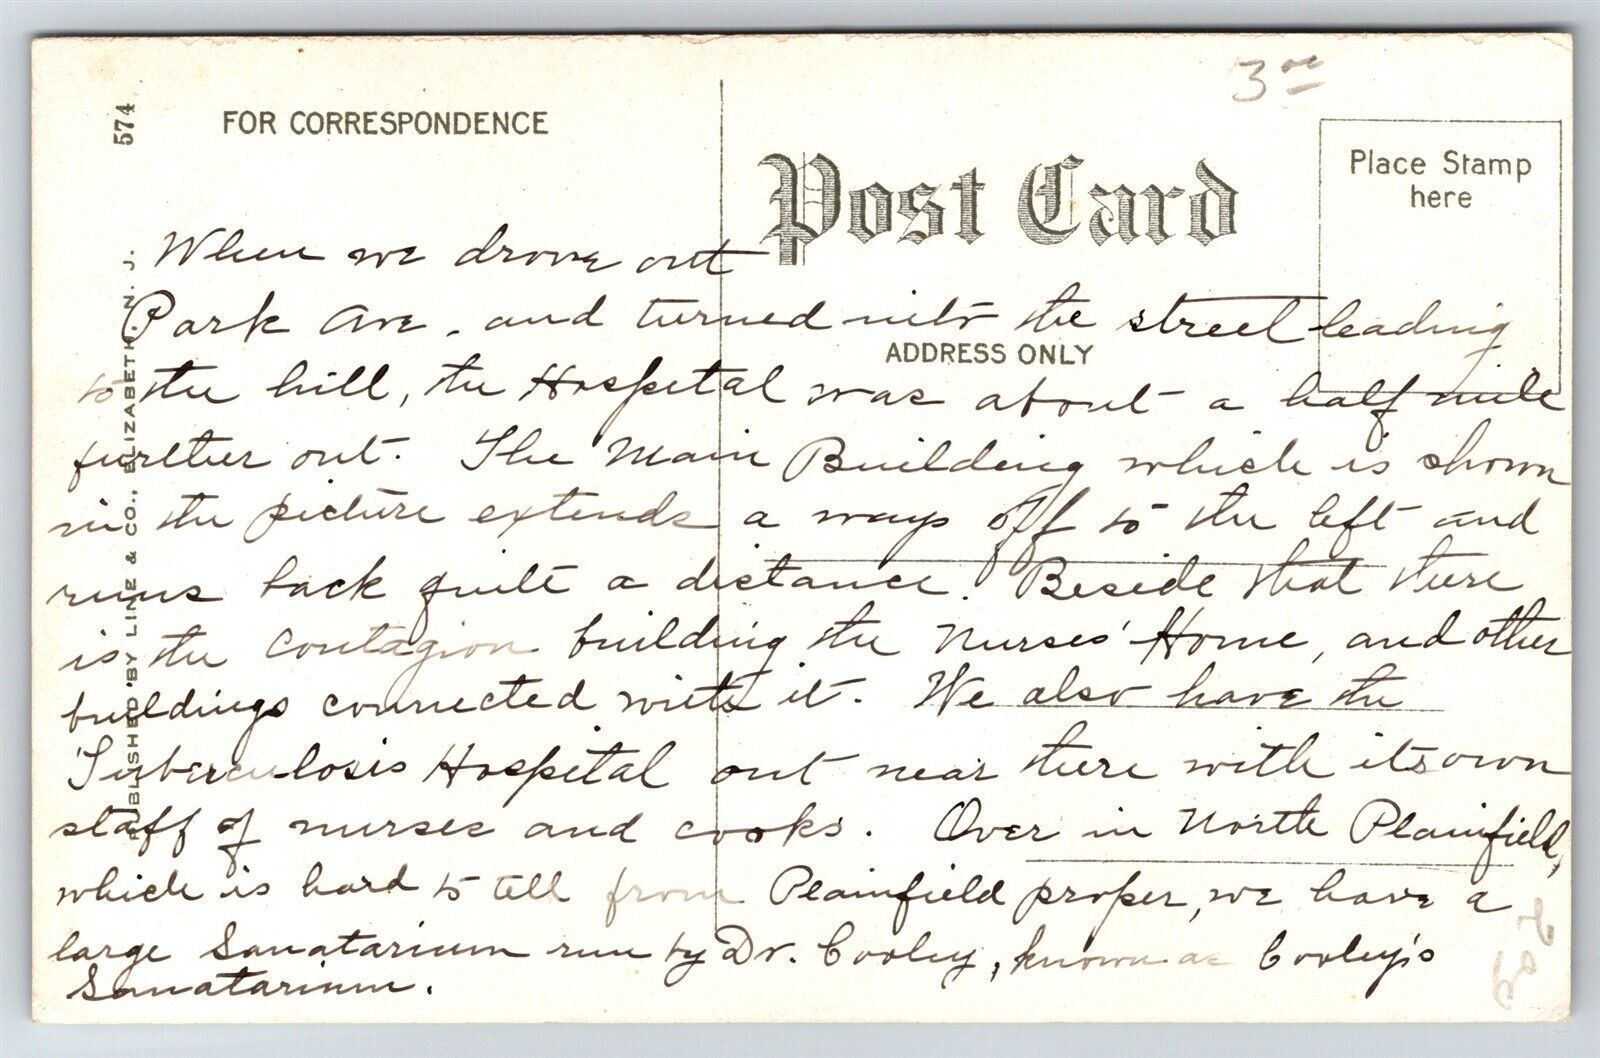 3 00
574
FOR CORRESPONDENCE
Post Card
Place Stamp
here
ADDRESS ONLY
PUBLISHED BY LINE & CO., ELIZABETH, N. J.
When we drove out
Park Ave. and turned into the street leading
to the hill, the Hospital was about a half mile
further out. The Main Building which is shown
in the picture extends a ways off to the left and
runs back quite a distance. Beside that there
is the contagion building the Nurses' Home, and other
buildings connected with it. We also have the
Tuberculosis Hospital out near there with its own
staff of nurses and cooks. Over in North Plainfield,
which is hard to tell from Plainfield proper, we have a
large Sanatarium run by Dr. Cooley, known as Cooley's
Sanatarium.